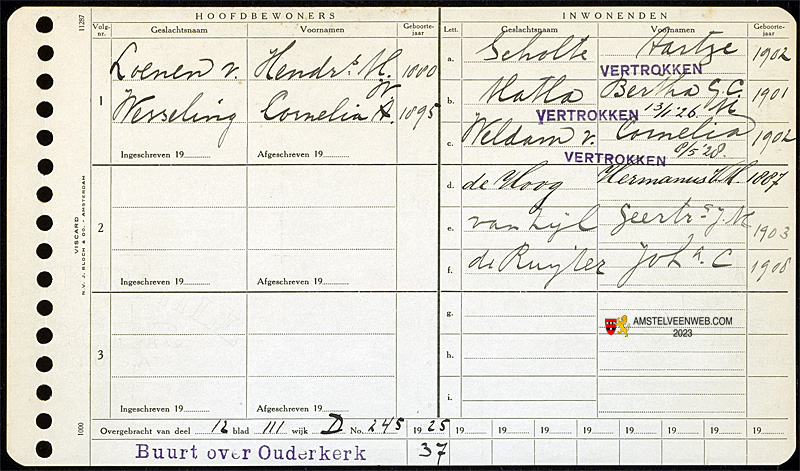 HOOFDBEWONERS
Volg-nr. Geslachtsnaam Voornamen Geboorte-jaar
Loenen v. Hendrs. M. 1880
1 Wesseling Cornelia A. W. 1895
Ingeschreven 19 Afgeschreven 19
2
Ingeschreven 19 Afgeschreven 19
3
Ingeschreven 19 Afgeschreven 19
INWONENDEN
Lett. Geslachtsnaam Voornamen Geboorte-jaar
a. Scholte Aartje 1902
VERTROKKEN
b. Hatla Bertha G.C. M 1901
VERTROKKEN 13/1 '26.
c. Weldam v. Cornelia 1902
VERTROKKEN 8/5 '28.
d. de Hoog Hermanus 1887
e. van Zijl Geertr. J. M 1903
f. de Ruijter Joha. C 1908
g.
h.
i.
AMSTELVEENWEB.COM
2023
Overgebracht van deel 12 blad 111 wijk D No. 245 19 25 19 19 19 19 19 19 19 19
Buurt over Ouderkerk 37
11287
VISCARD
N.V. J. BLOCH & CO. - AMSTERDAM
1000